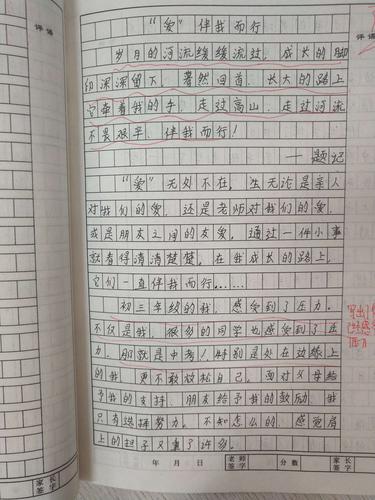 评语
评语
“爱”伴我而行
岁月的河流缓缓流过，成长的脚
印深深留下。蓦然回首，长大的路上
它牵着我的手，走过高山，走过河流
不畏艰辛，伴我而行！
——题记
“爱”无处不在，生无论是亲人
对我们的爱，还是老师对我们的爱，
或是朋友之间的友爱，通过一件小事
就看得清清楚楚，在我成长的路上，
它们一直伴我而行……
初三年级的我，感受到了压力。
不仅是我，很多的同学也感受到了压
力，那就是中考！特别是处在边缘上
的我，更不敢放松自己，面对父母给
予我的支持，朋友给予我的鼓励，我
只有选择努力。不知怎么的，感觉肩
上的担子又重了许多。
写出了
家长
签字
年 月 日
老师
签字
分数
家长
签字